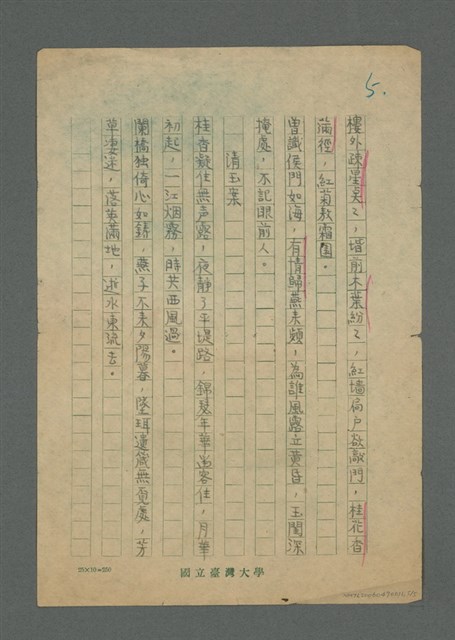 5.
樓外疎星昊々，堦前木葉紛々，紅墻扃户欲敲門，桂花香
滿徑，紅菊教霜園。
曾識侯門如海，有情歸燕未頻，為誰風露立黃昏，玉閨深
掩處，不記眼前人。
清玉案
桂香凝住無声露，夜靜了平堤路，錦瑟年華留客住，月華
初起，一江烟霧，時共西風過。
闌橋独倚心如鋳，燕子不来夕陽暮，墜珥遺簪無覓處，芳
草凄迷，落英滿地，逝水東流去。
25×10=250
國立臺灣大學